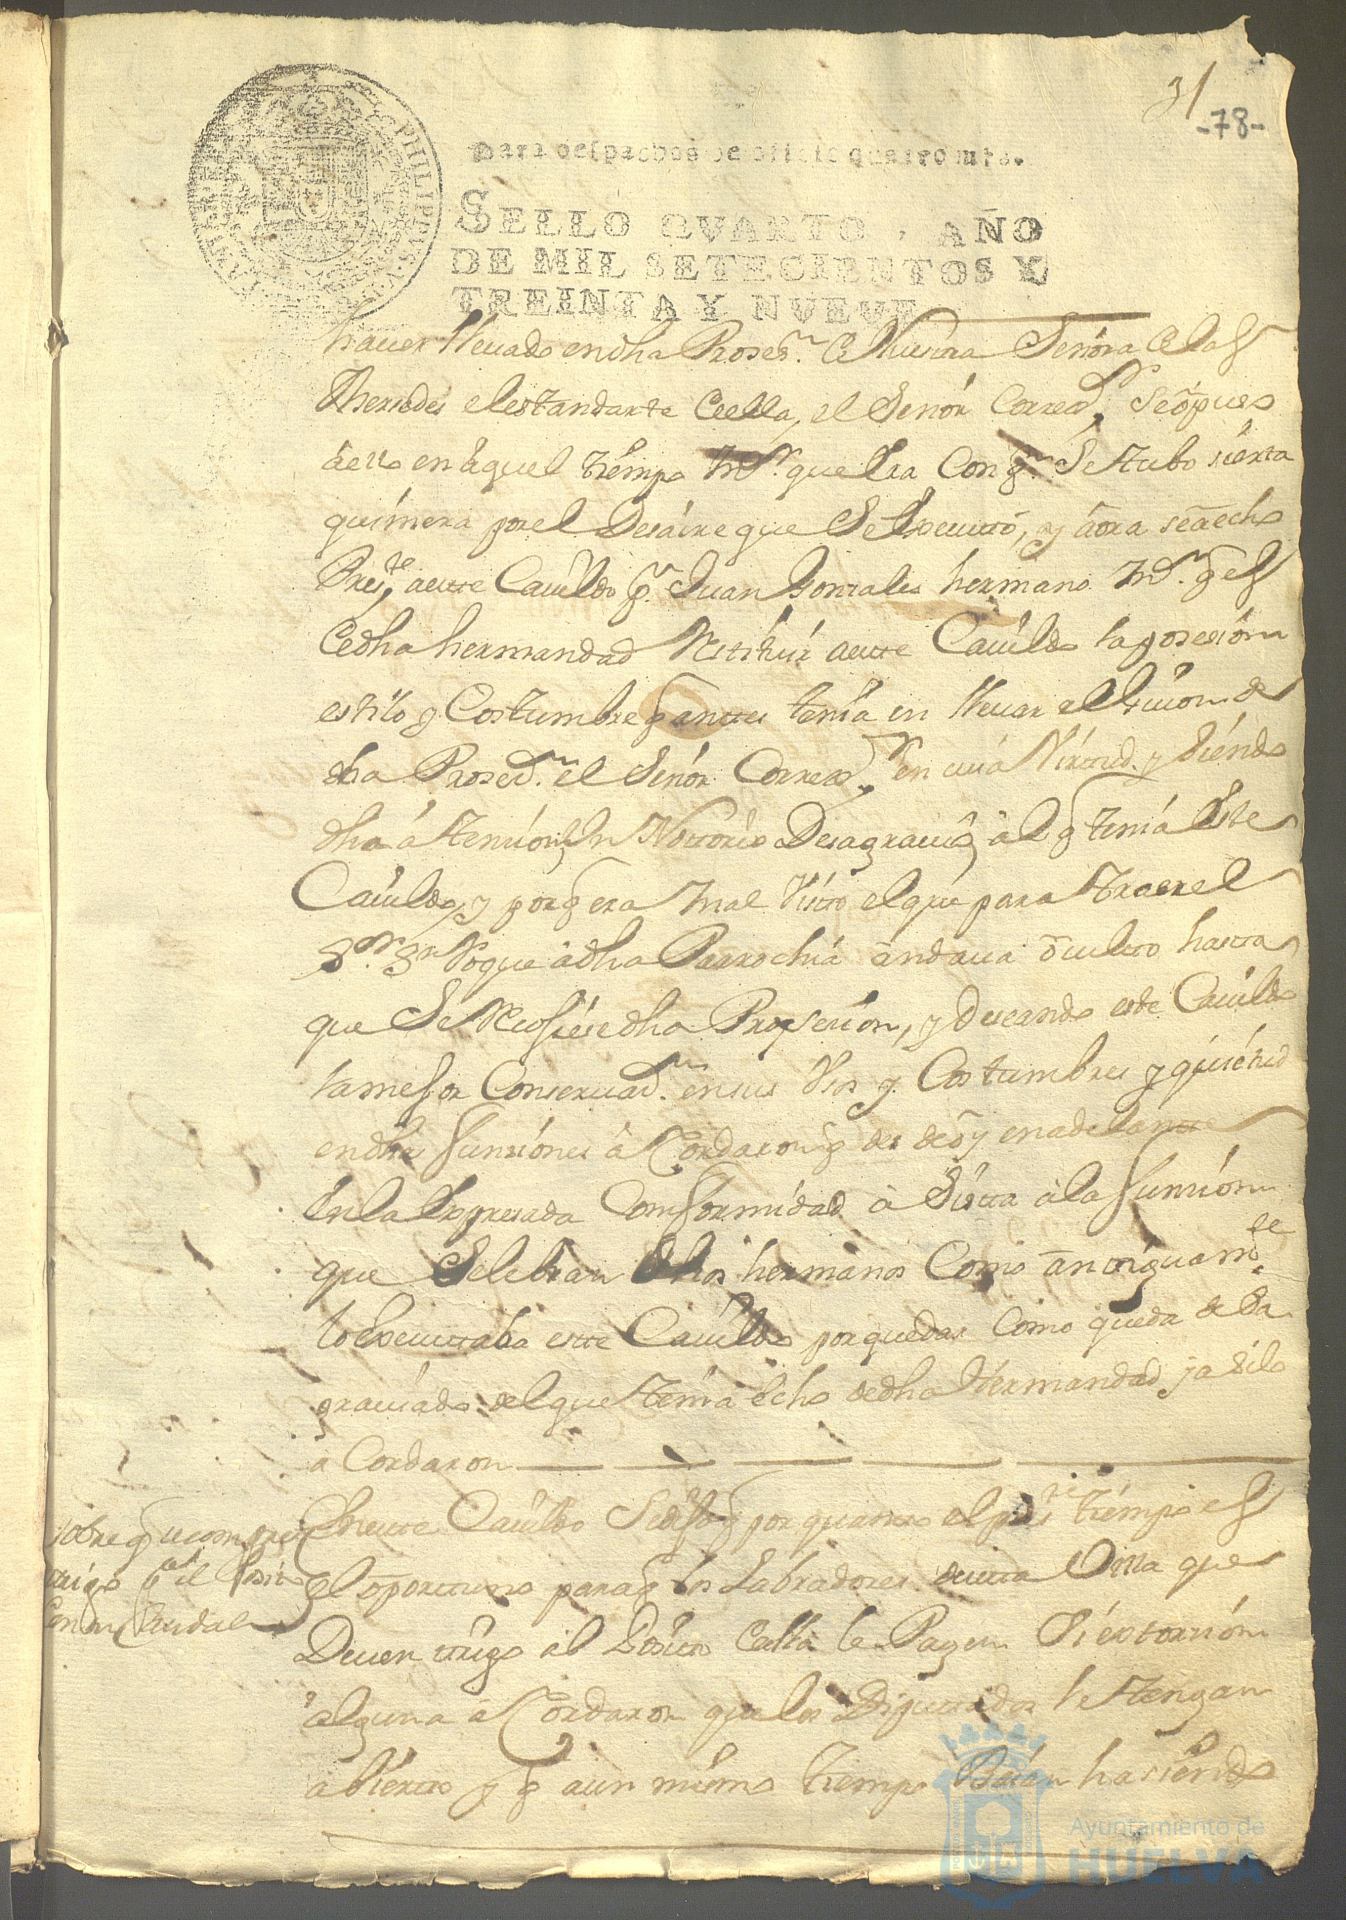 31
-78-
PHILIPPVS V D
Para despachos de oficio quatro mrs.
SELLO QVARTO, AÑO
DE MIL SETECIENTOS Y
TREINTA Y NVEVE
haver lleuado en dha Prosesn. de Nuestra Señora de las
Mersedes el estandarte de ella, el Señor Corredr.
en aquel tiempo que se tubo sierta
quimera por el Desaire que se executó, y aora se a echo
Prest. a este Cauildo pr. Juan Gonsales hermano
de dha hermandad Restituir a este Cauildo la posesion
estilo y Costumbre q antes tenia en lleuar el Guion de
dha Prosesn. el Señor Corredr. en cuia Virtud y siendo
dha atension en Notorio Desagrauio al q tenia este
Cauildo, y porq era mal Visto el que para traer el
Sr. Sn. Roque a dha Parrochia andaua oculto hasta
que se dha Prosesion, y deseando este Cauildo
la mejor Conseruasn. en sus Vsos y Costumbres y quietud
en dhas funsiones acordaron q desde oy en adelante
en la expresada Comformidad asista a la funsion
que Selebran dhos hermanos Como antiguamte.
lo executaba este Cauildo por quedar Como queda desa
grauiado del que tenia echo de dha Hermandad y asi lo
acordaron
Sobre q se compre
trigo pa. el Posito
con su Caudal
En este Cauildo se dijo q por quanto el preste. tiempo es
el oportuno para q los Labradores de esta Villa que
Deuen trigo al Posito della le Pagen Sin extorsion
alguna acordaron que los Diputados le tengan
abierto y q a un mismo tiempo Baian hasiendo
Ayuntamiento de
HUELVA